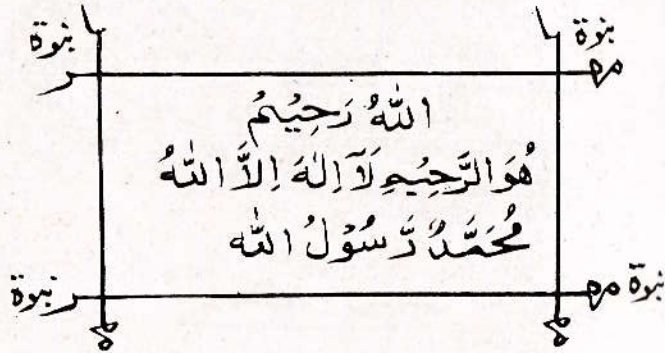 نبوة نبوة
اللهُ رَحِيْمُ
هُوَ الرَّحِيْمِ لَآ اِلٰهَ اِلَّا اللهُ
مُحَمَّدٌ رَّسُوْلُ الله
نبوة نبوة